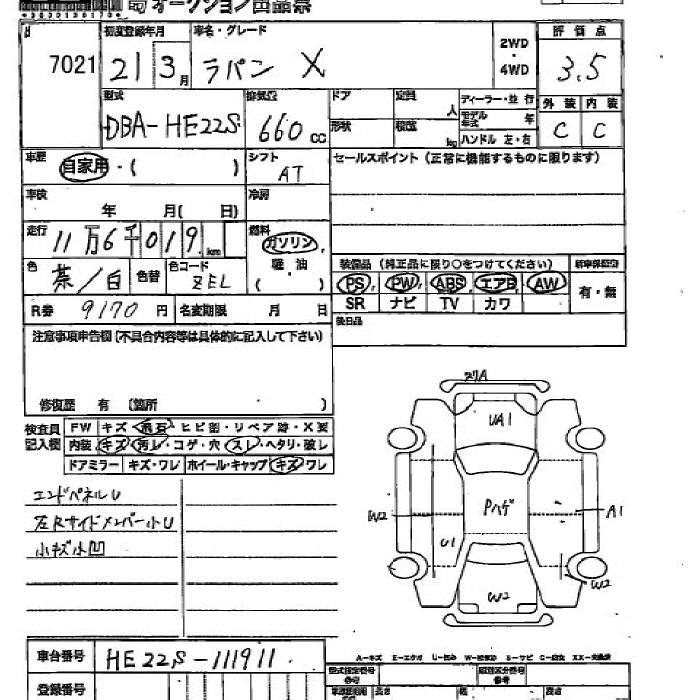 オークション出品票
7021
初度登録年月
21 3月
車名・グレード
ラパン X
2WD
・
4WD
評価点
3.5
型式
DBA-HE22S
排気量
660 cc
ドア
定員
人
ディーラー・並行
形状
積載
kg
モデル年式
年
ハンドル 左・右
外装 内装
C C
車歴
自家用・( )
シフト
AT
セールスポイント (正常に機能するものに限ります)
車検
年 月( 日)
冷房
走行
11万6千019 km
燃料
ガソリン
軽油
( )
色
茶/白
色替
色コード
ZEL
装備品 (純正品に限り○をつけてください)
新車保証書
PS PW ABS エアB AW
有・無
SR ナビ TV カワ
R券 9170 円
名変期限 月 日
後日品
注意事項申告欄(不具合内容等は具体的に記入して下さい)
修復歴 有 〔箇所 〕
検査員記入欄
FW キズ・飛石・ヒビ割・リペア跡・X要
内装 キズ・汚レ・コゲ・穴・スレ・ヘタリ・破レ
ドアミラー キズ・ワレ ホイール・キャップ キズ・ワレ
エンドパネルU
左RサイドメンバーホU
小キズ小凹
27A
UA1
W2
Pハゲ
A1
U1
W2
W2
車台番号
HE22S-111911
登録番号
A-キズ E-エクボ U-凹み W-補修跡 S-サビ C-腐食 XX-交換済
型式指定番号
類別区分番号
長さ
幅
高さ